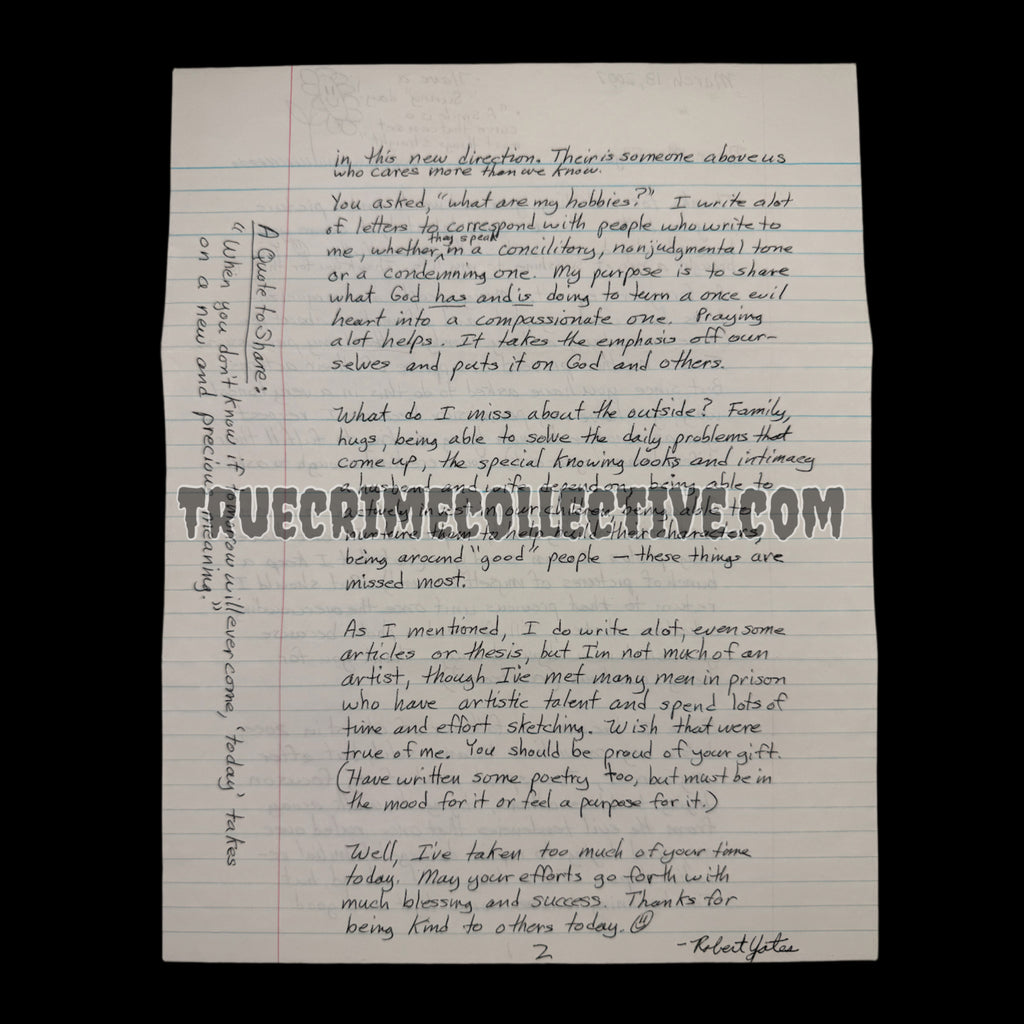 in this new direction. Their is someone above us
who cares more than we know.
You asked, "what are my hobbies?" I write alot
of letters to correspond with people who write to
me, whether they speak in a concilitory, nonjudgmental tone
or a condemning one. My purpose is to share
what God has and is doing to turn a once evil
heart into a compassionate one. Praying
alot helps. It takes the emphasis off our-
selves and puts it on God and others.
What do I miss about the outside? Family,
hugs, being able to solve the daily problems that
come up, the special knowing looks and intimacy
a husband and wife depend on, being able to
actively invest in our children being able to
nurture them to help build their characters,
being around "good" people — these things are
missed most.
As I mentioned, I do write alot, even some
articles or thesis, but I'm not much of an
artist, though I've met many men in prison
who have artistic talent and spend lots of
time and effort sketching. Wish that were
true of me. You should be proud of your gift.
(Have written some poetry too, but must be in
the mood for it or feel a purpose for it.)
Well, I've taken too much of your time
today. May your efforts go forth with
much blessing and success. Thanks for
being kind to others today.
-Robert Yates
2
A Quote to Share:
"When you don't know if tomorrow will ever come, 'today' takes
on a new and precious meaning."
TRUECRIMECOLLECTIVE.COM
March 13, 2007
Have a
Sunny day